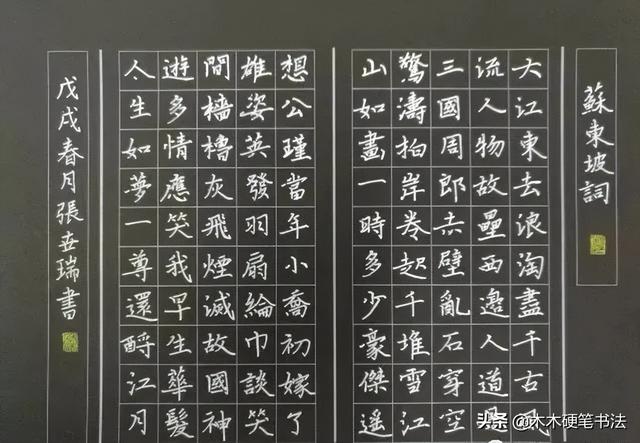 蘇東坡詞
大江東去浪淘盡千古
流人物故壘西邊人道
三國周郎赤壁亂石穿空
驚濤拍岸卷起千堆雪江
山如畫一時多少豪傑遥
想公瑾當年小喬初嫁了
雄姿英發羽扇綸巾談笑
間檣櫓灰飛煙滅故國神
遊多情應笑我早生華髮
人生如夢一尊還酹江月
戊戌春月張世瑞書
头条 @木木硬笔书法